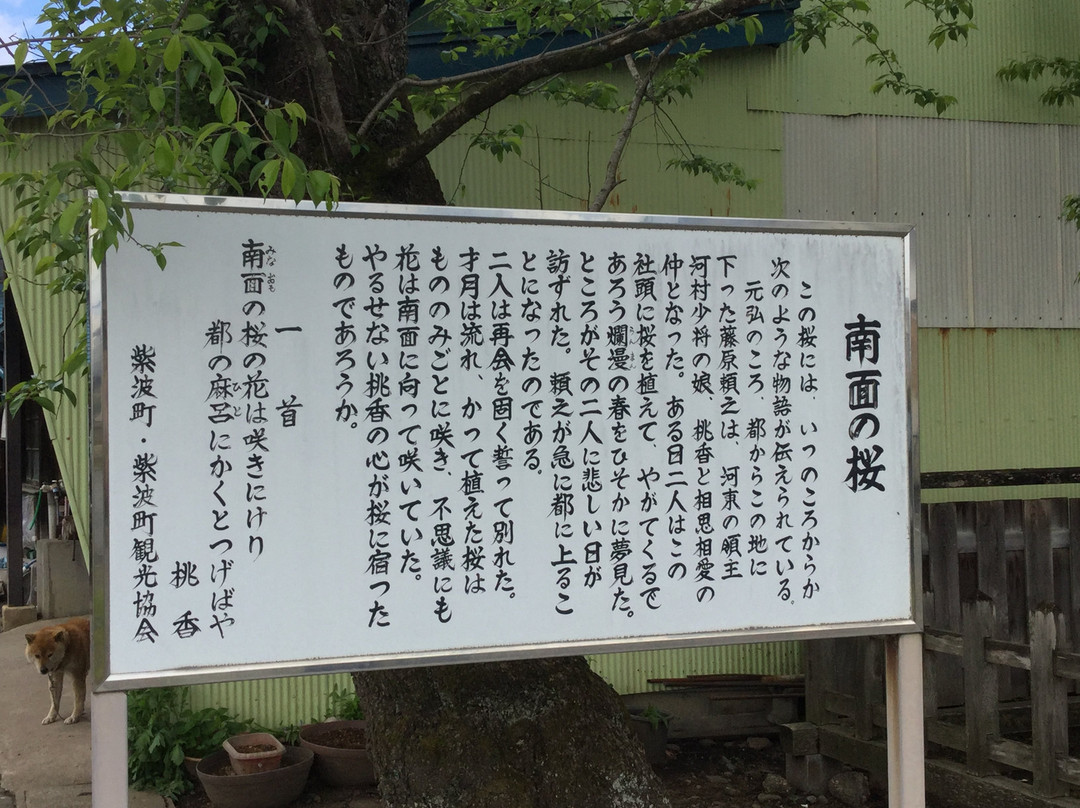 南面の桜
この桜には、いつのころからか
次のような物語が伝えられている。
元弘のころ、都からこの地に
下った藤原頼之は、河東の領主
河村少将の娘、桃香と相思相愛の
仲となった。ある日二人はこの
社頭に桜を植えて、やがてくるで
あろう爛漫の春をひそかに夢見た。
らんまん
ところがその二人に悲しい日が
訪ずれた。頼之が急に都に上るこ
とになったのである。
二人は再会を固く誓って別れた。
才月は流れ、かつて植えた桜は
もののみごとに咲き、不思議にも
花は南面に向って咲いていた。
やるせない桃香の心が桜に宿った
ものであろうか。
一首
南面の桜の花は咲きにけり
みなおも
都の麻呂にかくとつげばや
ひと
桃香
紫波町・紫波町観光協会